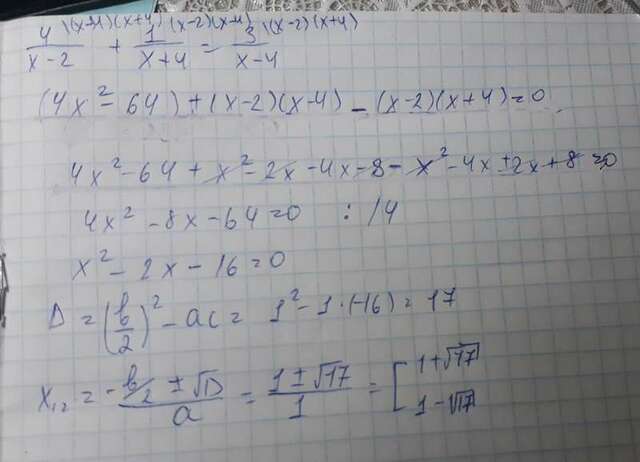 4 \(x-4)(x+4) / x-2 + 1 \(x-2)(x-4) / x+4 = 3 \(x-2)(x+4) / x-4
(4x²-64)+(x-2)(x-4)-(x-2)(x+4)=0
4x²-64+x²-2x-4x-8-x²-4x+2x+8=0
4x²-8x-64=0 :/4
x²-2x-16=0
D=(b/2)²-ac=1²-1·(-16)=17
x₁,₂=-b/2±√D / a = 1±√17 / 1 = [1+√17
1-√17